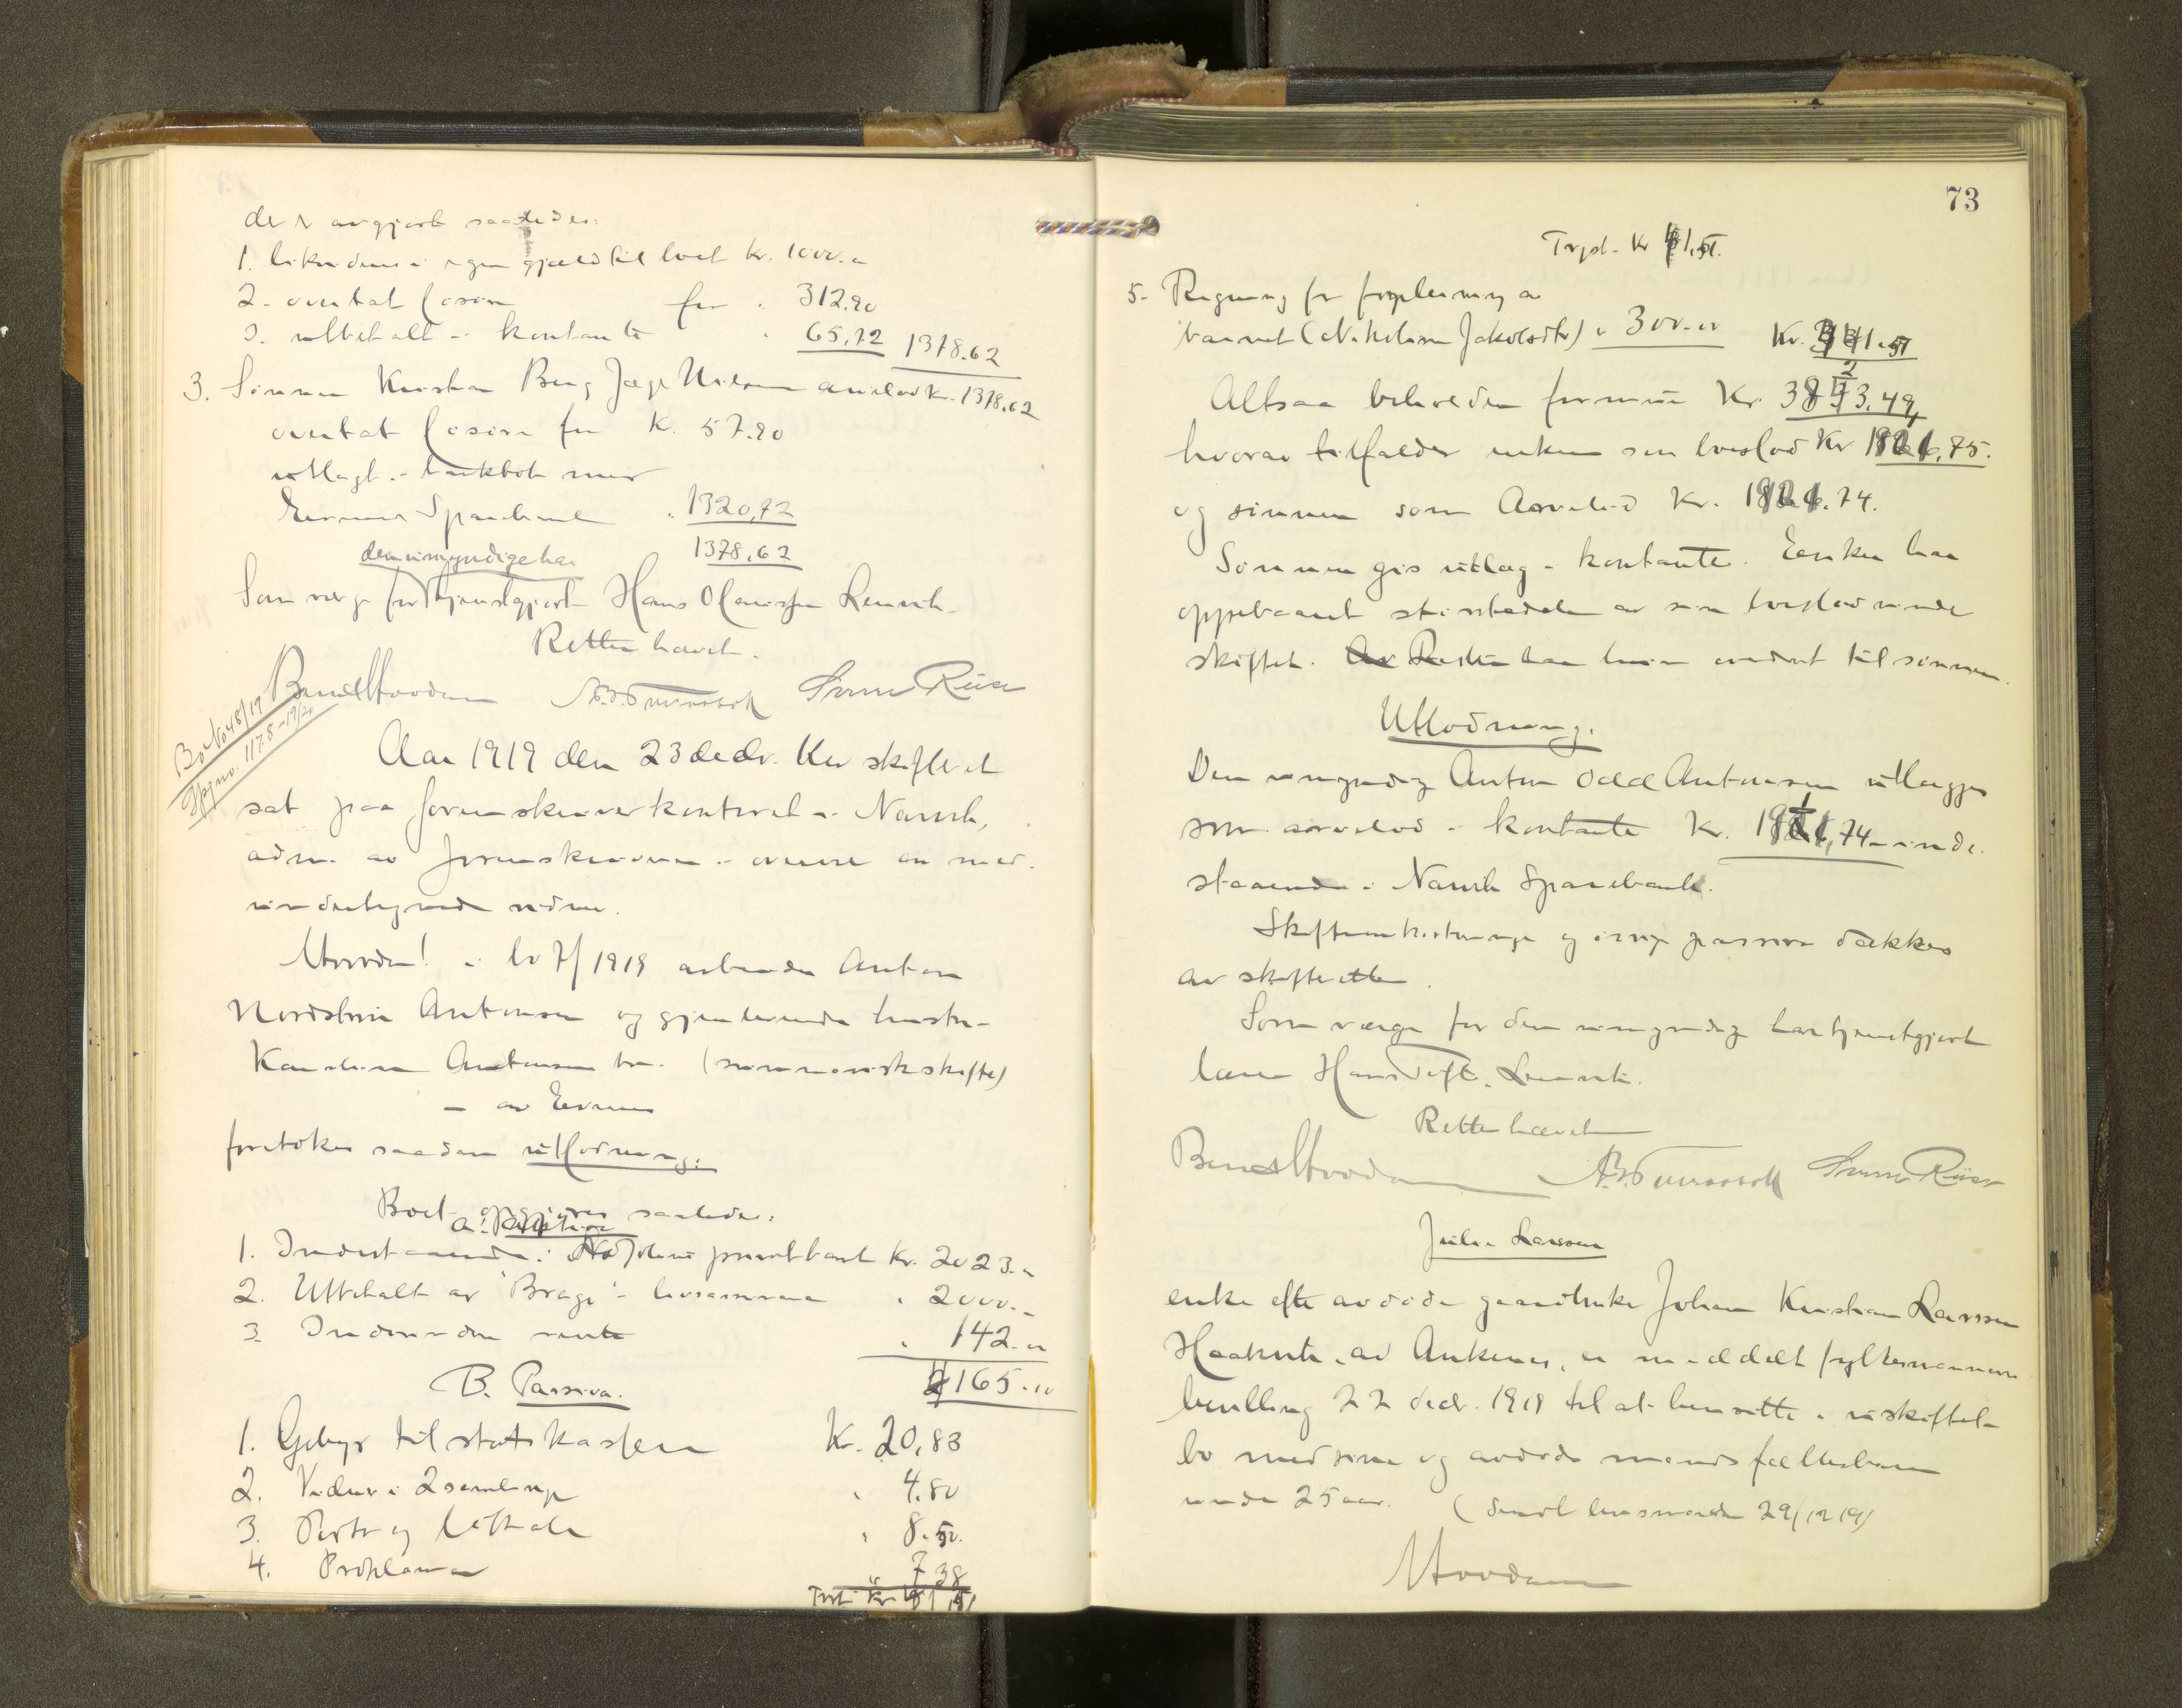 der avgjort saaledes:
1. likviderer egen gjæld til boet Kr. 1000.-
2. overtat løsøre for " 312.90
3. utbetalt i kontante " 65,72 1378.62
3. Sønnen Kristian Berg Jæger Nilsen arvelod Kr. 1378.62
overtat løsøre for K. 57.90
utlagt i bankbok med
Evenes Sparebank " 1320,72
1378.62
den umyndige har
Som verge for tjenstgjort Hans Olaussen Lenvik.
Retten hævet.
Bernt Hovdan Sverre Riise
Bo No 48/19
Hpj.no. 1178-19/20
Aar 1919 den 23 decbr. blev skifteret
sat paa sorenskriverkontoret i Narvik,
adm. av sorenskriveren i overvær av med-
undertegnede vidner.
Hvorda! i bo 7/1919 avdøde Anton
Nordstrøm Antonsen og gjenlevende hustru
Karoline Antonsen bo. (summarisk skifte)
- av Evenes
foretokes saadan utlodning:
Boet opgjøres saaledes:
A. Aktiva
1. Indestaaende i Ofotens privatbank Kr. 2023.-
2. Utbetalt av "Brage" livsassurance " 2000.-
3. Indvunden rente " 142.10
4165.10
B. Passiva.
1. Gebyr til statskassen Kr. 20,83
2. Vidner i 2 samlinger " 4.80
3. Porto og lettale " 8.50.
4. Proklama " 7 38
Trsp. Kr 41,51
73
Trspt. Kr 41,51.
5. Regning for forpleining av
barnet (Nikoline Jakobsdtr) " 300.00 Kr. 341.51
Altsaa beholden formue Kr. 3823.49,
hvorav tilfalder enken som boeslod Kr 1911.75.
og sønnen som Arvelod Kr. 1911.74.
Sønnen gis utlæg i kontante. Enken har
oppebaaret størstedelen av sin boeslod under
skiftet. Resten har hun overdraget til sønnen.
Utlodning.
Den umyndige Anton Odd Antonsen utlægges
som arvelod i kontante Kr. 1911,74 inde-
staaende i Narvik Sparebank.
Skifteomkostninger og øvrige passiva dækkes
av skifteretten.
Som verge for den umyndige har tjenstgjort
lærer Hans Toft, Lenvik.
Retten hævet
Bernt Hovdan Sverre Riise
Julie Larsen
enke efter avdøde gaardbruker Johan Kristian Larsen
Haakvik, av Ankenes, er meddelt fylkesmannens
bevilling 22 decbr. 1919 til at hensitte i uskiftet
bo med sine og avdøde mands fællesbarn
under 25 aar. (Sendt lensmanden 29/12 19)
Hovdan